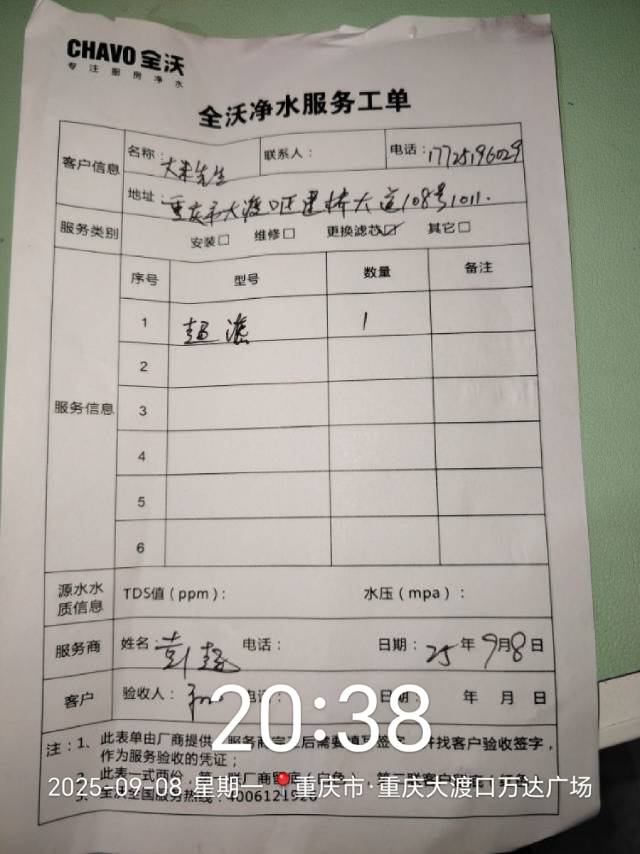 CHAVO 全沃
专注厨房净水
全沃净水服务工单
客户信息
名称: 大来先生 联系人: 电话: 17725196029
地址: 重庆市大渡口区建桥大道108号1011.
服务类别 安装□ 维修□ 更换滤芯☑ 其它□
服务信息
序号 型号 数量 备注
1 超滤 1
2
3
4
5
6
源水水质信息
TDS值(ppm): 水压(mpa):
服务商 姓名: 电话: 日期: 25年9月8日
客户 验收人: 电话: 日期: 年 月 日
20:38
注: 1、此表单由厂商提供,服务商完工后需要填写签字,并找客户验收签字,
作为服务验收的凭证;
2、此表一式两份,第一联厂商留底
3、全沃全国服务热线: 4006121926
2025-09-08 星期一 重庆市·重庆大渡口万达广场